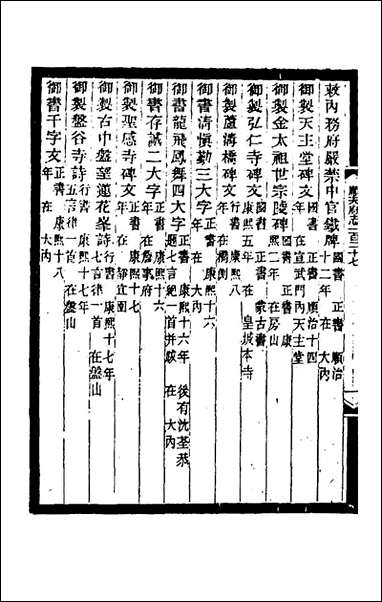 順天府志一百二十七
敕內務府嚴禁中官鐵牌 國書 正書 順治十二年 在 大內
御製天主堂碑文 國書 正書 順治十四年 在宣武門內天主堂
御製金太祖世宗陵碑 國書 正書 康熙二年 在房山
御製弘仁寺碑文 國書 正書 蒙古書 康熙五年 在 皇城本寺
御製蘆溝橋碑文 行書 康熙八年 在橋側
御書清慎勤三大字 正書 康熙十六年 在 大內
御書龍飛鳳舞四大字 正書 康熙十六年 後有沈荃恭題七言絕一首并跋 在 大內
御書存誠二大字 正書 康熙十六年 在詹事府
御製聖感寺碑文 正書 康熙十七年 在 靜宜園
御製古中盤望蓮花峯詩 行書 康熙十七年 七言律一首 在盤山
御製盤谷寺詩 行書 康熙十七年 五言律一首 在盤山
御書千字文 正書 康熙十八年 在 大內